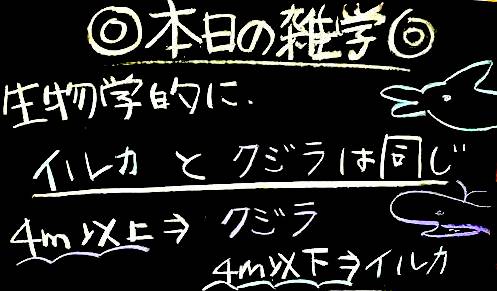 ◎本日の雑学◎
生物学的に.
イルカとクジラは同じ
4m以上⇒クジラ
4m以下⇒イルカ